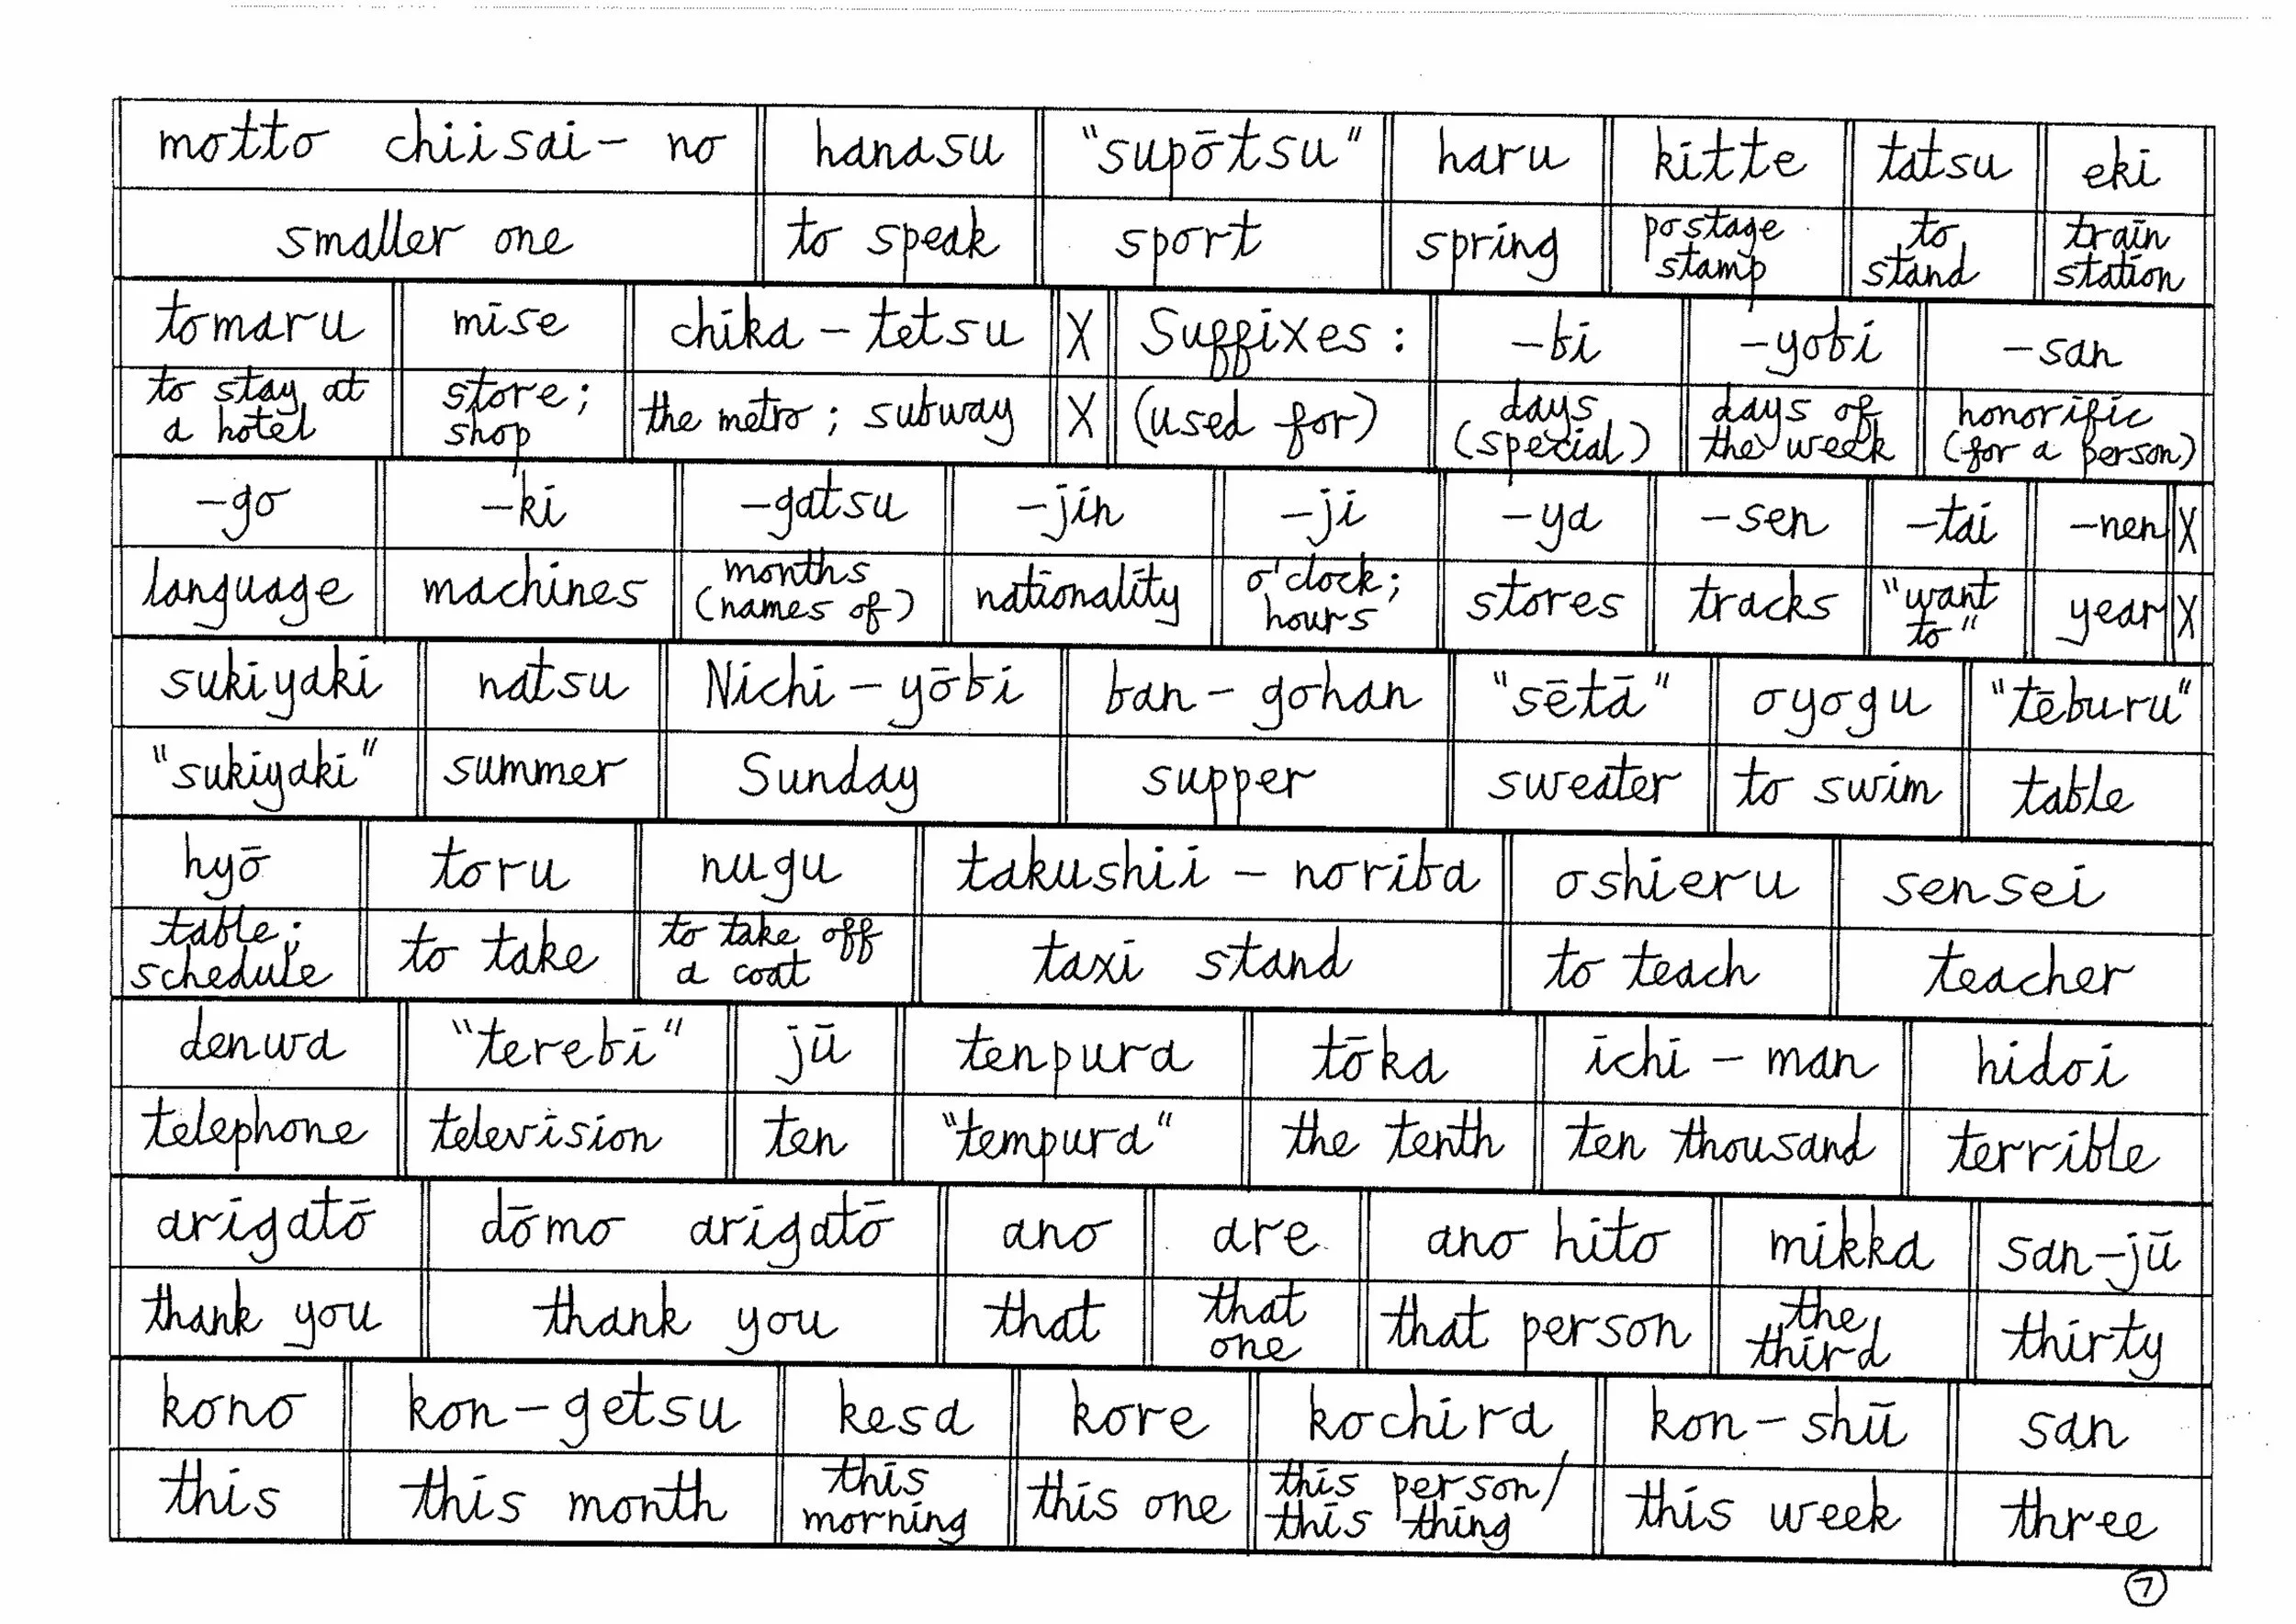 motto chiisai-no hanasu "supōtsu" haru kitte tatsu eki
smaller one to speak sport spring postage stamp to stand train station
tomaru mise chika-tetsu X Suffixes: -bi -yobi -san
to stay at a hotel store; shop the metro; subway X (used for) days (special) days of the week honorific (for a person)
-go -ki -gatsu -jin -ji -ya -sen -tai -nen X
language machines months (names of) nationality o'clock; hours stores tracks "want to" year X
sukiyaki natsu Nichi-yōbi ban-gohan "sētā" oyogu "tēburu"
"sukiyaki" summer Sunday supper sweater to swim table
hyō toru nugu takushii-noriba oshieru sensei
table; schedule to take to take off a coat taxi stand to teach teacher
denwa "terebi" jū tenpura tōka ichi-man hidoi
telephone television ten "tempura" the tenth ten thousand terrible
arigatō dōmo arigatō ano are ano hito mikka san-jū
thank you thank you that that one that person the third thirty
kono kon-getsu kesa kore kochira kon-shū san
this this month this morning this one this person/ this thing this week three
7